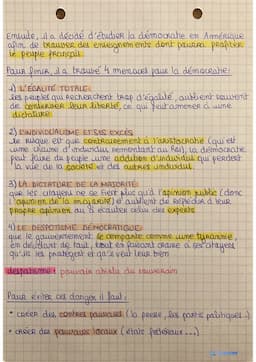 Ensuite, il a décidé d'étudier la démocratie en Amérique
afin de trouver des enseignements dont pourra profiter
le peuple français.
Pour finir, il a trouvé 4 menaces pour la démocratie:
1) L'ÉGALITÉ TOTALE:
les peuples qui recherchent trop d'égalité, oublient souvent
de conserver leur liberté, ce qui peut amener à une
dictature.
2) L'INDIVIDUALISME ET SES EXCÈS
Le risque est que contrairement à l'aristocratie (qui est
une chaîne d'individus remontant au roi), la démocratie
peut faire du peuple une addition d'individus qui perdent
la vue de la société et des autres individus.
3) LA DICTATURE DE LA MAJORITÉ:
que les citoyens ne se fient plus qu'à l'opinion public (donc
l'opinion de la majorité) et oublient de réfléchir à leur
propre opinion ou à écouter celui des experts
4) LE DESPOTISME DÉMOCRATIQUE:
que le gouvernement se comporte comme une tyrannie,
en décidant de tout, tout en faisant croire à ses citoyens
qu'ils les protègent et qu'il veut leur bien
despotisme: pouvoir absolu du souverain
Pour éviter ces danger il faut:
• créer des contres pouvoirs (la presse, les partis politiques..)
• créer des pouvoirs locaux (états fédéraux...)